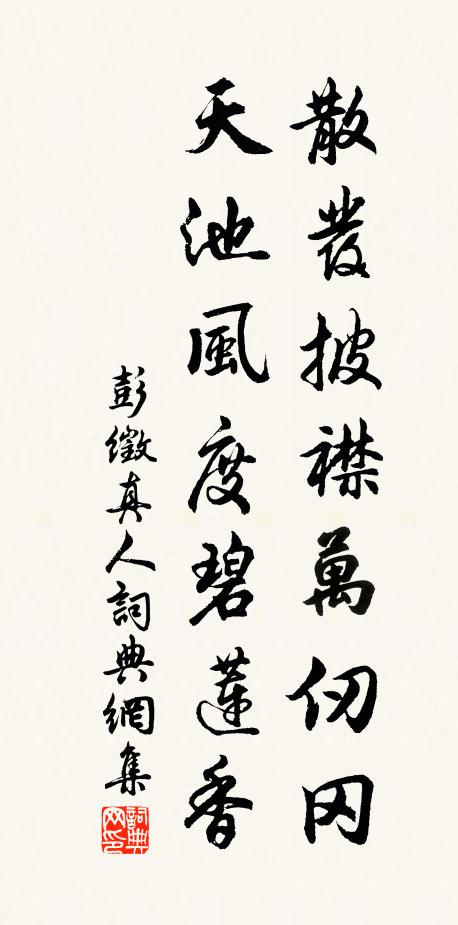 散發披襟萬仞冈
天池風度碧蓮香
彭徵真人詞典網集
詞典网印